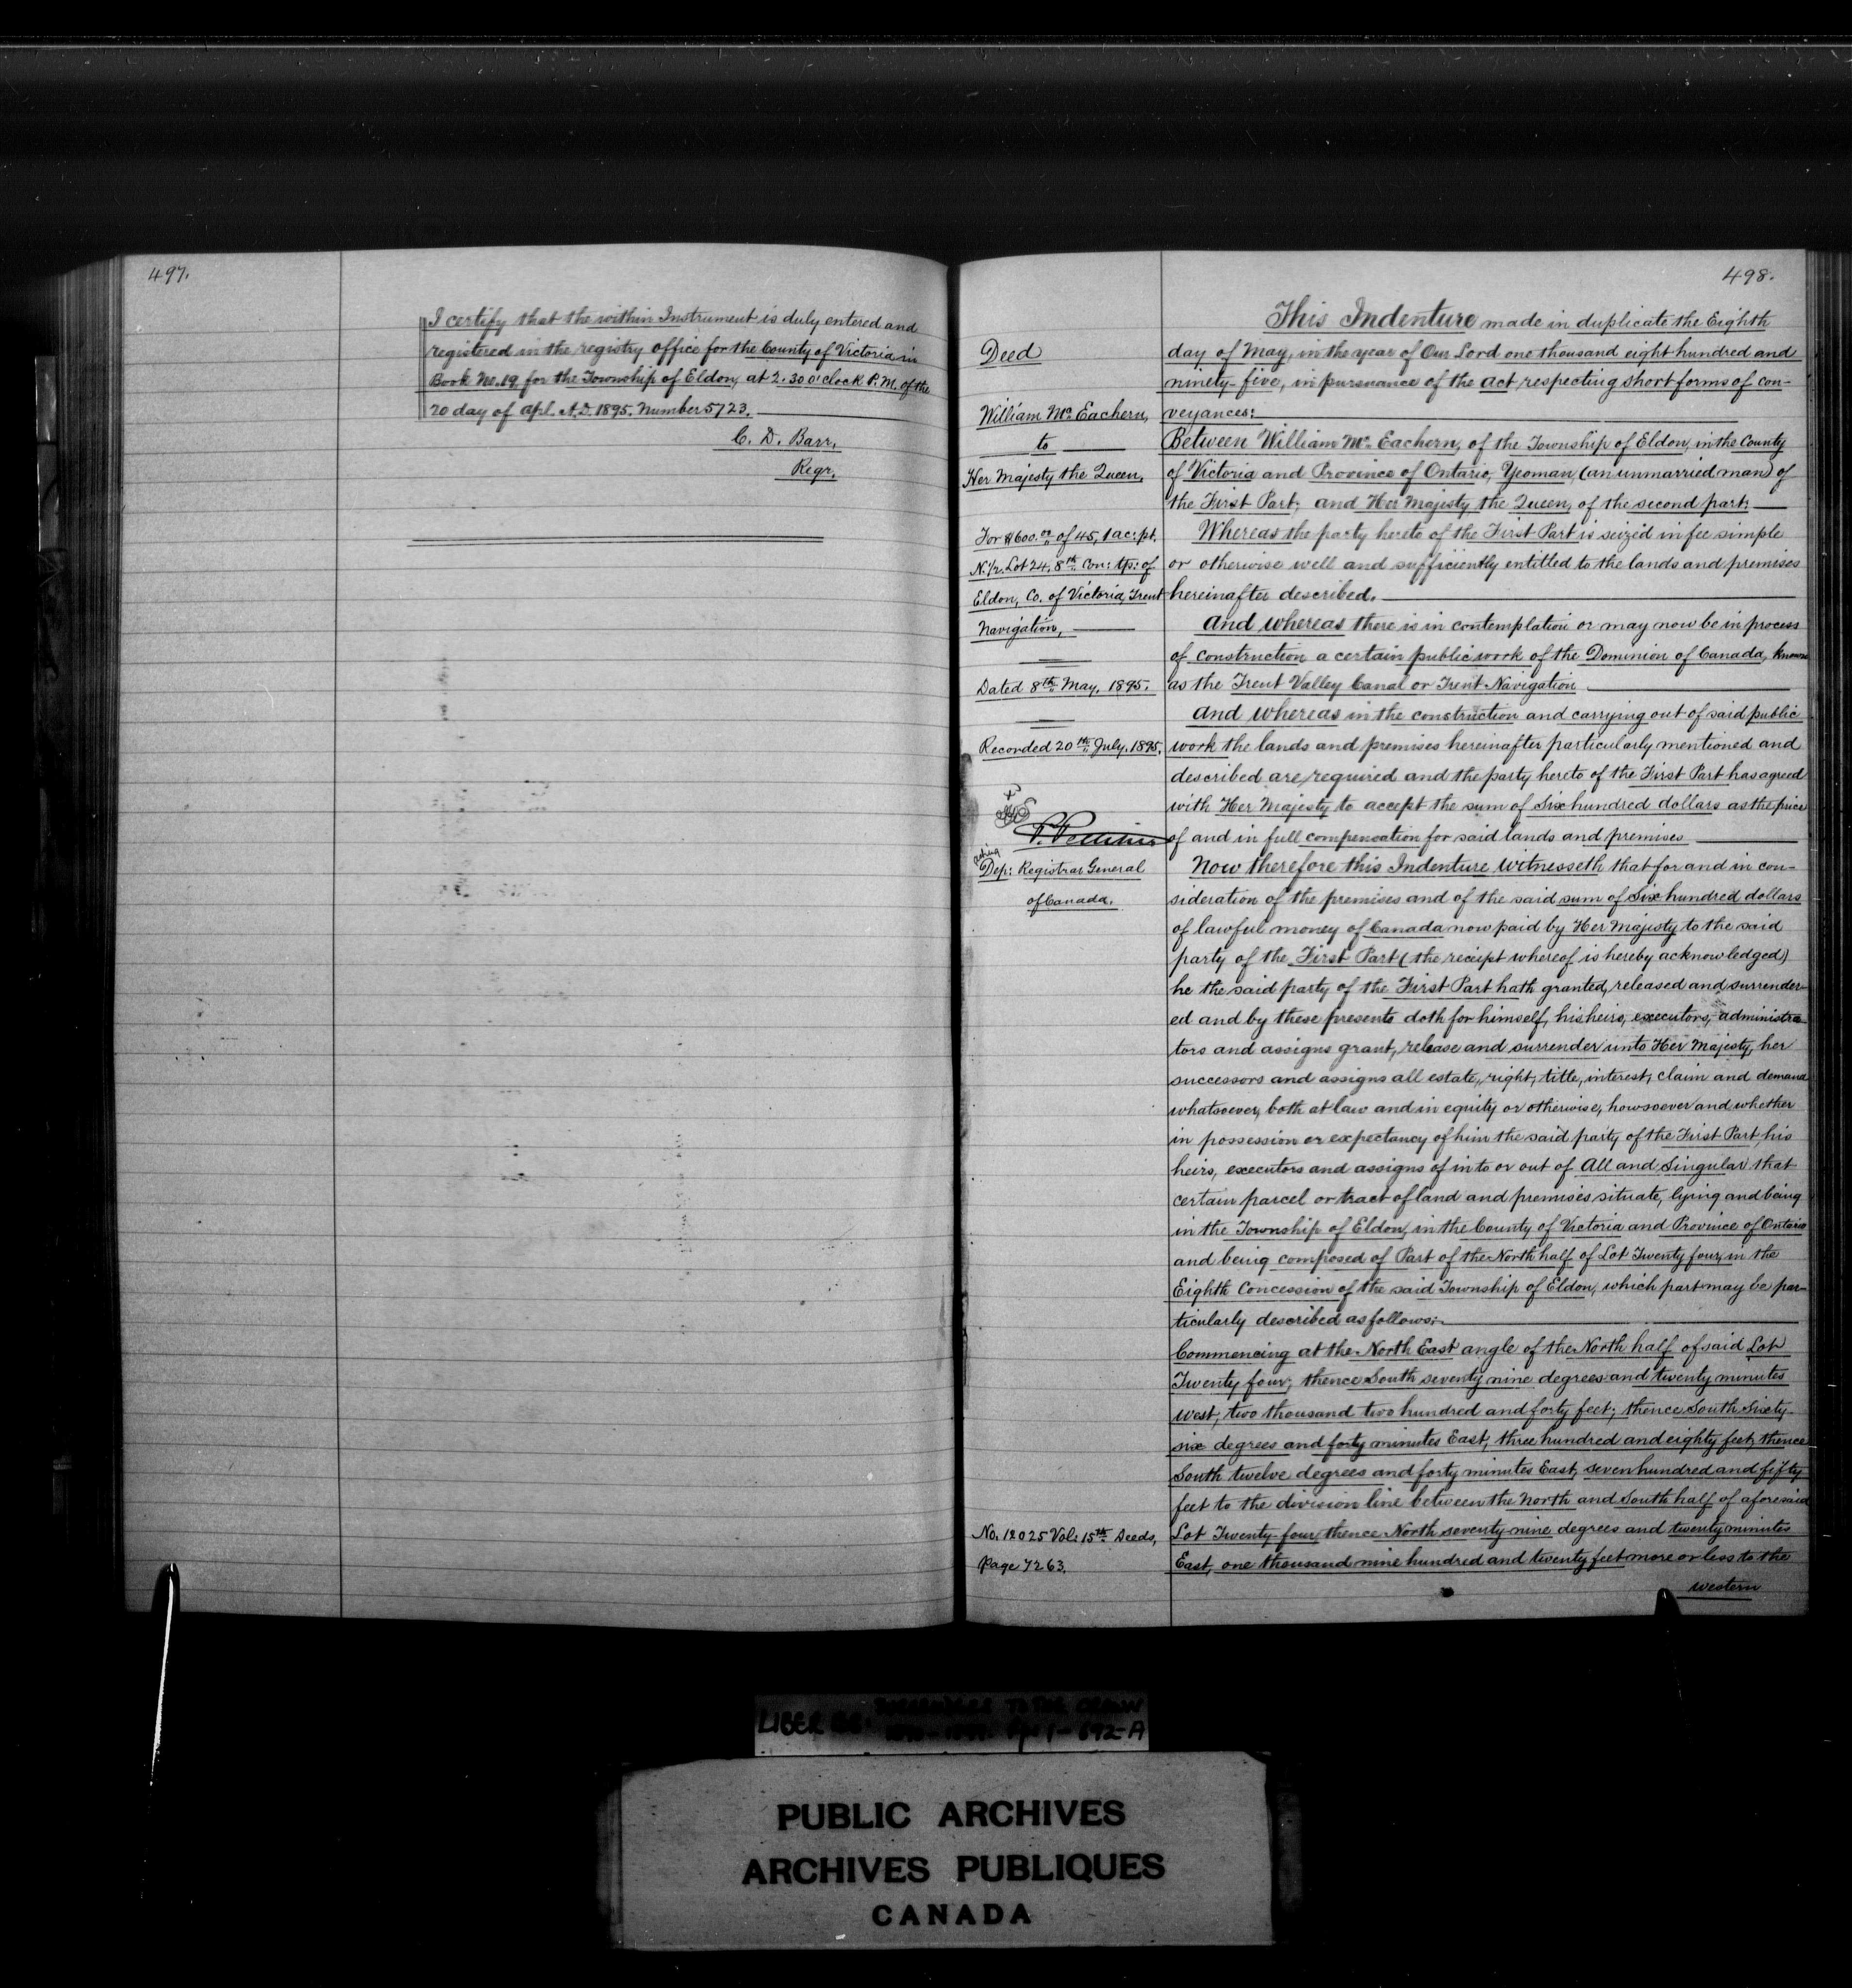 497.
I certify that the within Instrument is duly entered and
registered in the registry office for the County of Victoria in
Book No. 19 for the Township of Eldon, at 2.30 o'clock P.M. of the
20 day of Apl. A.D. 1895. Number 5723.
C. D. Barr,
Regr.
498.
Deed
William Mc Eachern,
to
Her Majesty the Queen,
For $600.00 of 45,1 ac: pt.
N. 1/2. Lot 24, 8th Con: tp: of
Eldon, Co. of Victoria, Trent
Navigation,
Dated 8th May, 1895.
Recorded 20th July, 1895.
P. Pelletier
acting
Dep: Registrar General
of Canada.
No. 12025 Vol: 15th Deeds,
Page 7263.
This Indenture made in duplicate the Eighth
day of May, in the year of Our Lord one thousand eight hundred and
ninety-five, in pursuance of the Act respecting short forms of con-
veyances:
Between William Mc Eachern, of the Township of Eldon, in the County
of Victoria and Province of Ontario, Yeoman, (an unmarried man) of
the First Part; and Her Majesty the Queen, of the second part:
Whereas the party hereto of the First Part is seized in fee simple
or otherwise well and sufficiently entitled to the lands and premises
hereinafter described.
And whereas there is in contemplation or may now be in process
of construction a certain public work of the Dominion of Canada, known
as the Trent Valley Canal or Trent Navigation
And whereas in the construction and carrying out of said public
work the lands and premises hereinafter particularly mentioned and
described are required and the party hereto of the First Part has agreed
with Her Majesty to accept the sum of Six hundred dollars as the price
of and in full compensation for said lands and premises
Now therefore this Indenture witnesseth that for and in con-
sideration of the premises and of the said sum of Six hundred dollars
of lawful money of Canada now paid by Her Majesty to the said
party of the First Part (the receipt whereof is hereby acknowledged)
he the said party of the First Part hath granted, released and surrender-
ed and by these presents doth for himself, his heirs, executors, administra-
tors and assigns grant, release and surrender unto Her Majesty, her
successors and assigns all estate, right, title, interest, claim and demand
whatsoever, both at law and in equity or otherwise, howsoever and whether
in possession or expectancy of him the said party of the First Part, his
heirs, executors and assigns of in to or out of All and Singular that
certain parcel or tract of land and premises situate, lying and being
in the Township of Eldon, in the County of Victoria and Province of Ontario
and being composed of Part of the North half of Lot Twenty four, in the
Eighth Concession of the said Township of Eldon, which part may be par-
ticularly described as follows:-
Commencing at the North East angle of the North half of said Lot
Twenty four; thence South seventy nine degrees and twenty minutes
West, two thousand two hundred and forty feet; thence South Sixty-
six degrees and forty minutes East, three hundred and eighty feet; thence
South twelve degrees and forty minutes East, seven hundred and fifty
feet to the division line between the North and South half of aforesaid
Lot Twenty-four, thence North seventy-nine degrees and twenty minutes
East, one thousand nine hundred and twenty feet more or less to the
western
PUBLIC ARCHIVES
ARCHIVES PUBLIQUES
CANADA